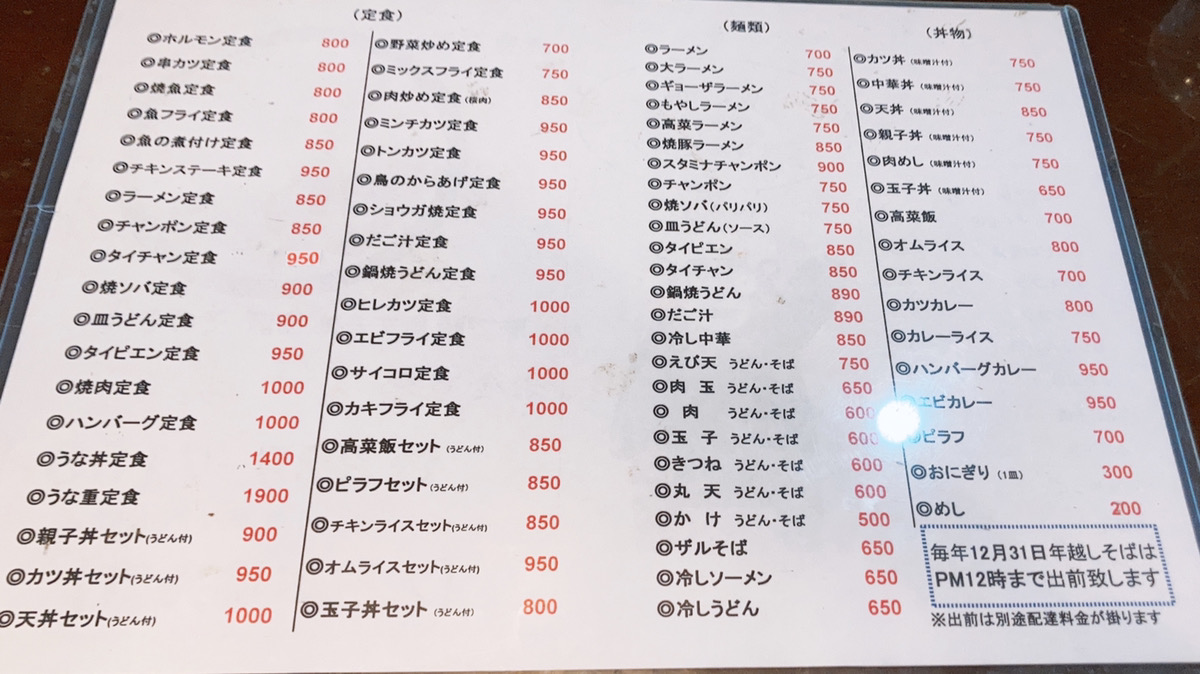 (定食)
◎ホルモン定食 800
◎串カツ定食 800
◎焼魚定食 800
◎魚フライ定食 800
◎魚の煮付け定食 850
◎チキンステーキ定食 950
◎ラーメン定食 850
◎チャンポン定食 850
◎タイチャン定食 950
◎焼ソバ定食 900
◎皿うどん定食 900
◎タイピエン定食 950
◎焼肉定食 1000
◎ハンバーグ定食 1000
◎うな丼定食 1400
◎うな重定食 1900
◎親子丼セット(うどん付) 900
◎カツ丼セット(うどん付) 950
◎天丼セット(うどん付) 1000
◎野菜炒め定食 700
◎ミックスフライ定食 750
◎肉炒め定食(桜肉) 850
◎ミンチカツ定食 950
◎トンカツ定食 950
◎鳥のからあげ定食 950
◎ショウガ焼定食 950
◎だご汁定食 950
◎鍋焼うどん定食 950
◎ヒレカツ定食 1000
◎エビフライ定食 1000
◎サイコロ定食 1000
◎カキフライ定食 1000
◎高菜飯セット(うどん付) 850
◎ピラフセット(うどん付) 850
◎チキンライスセット(うどん付) 850
◎オムライスセット(うどん付) 950
◎玉子丼セット(うどん付) 800
(麺類)
◎ラーメン 700
◎大ラーメン 750
◎ギョーザラーメン 750
◎もやしラーメン 750
◎高菜ラーメン 750
◎焼豚ラーメン 850
◎スタミナチャンポン 900
◎チャンポン 750
◎焼ソバ(パリパリ) 750
◎皿うどん(ソース) 750
◎タイピエン 850
◎タイチャン 850
◎鍋焼うどん 890
◎だご汁 890
◎冷し中華 850
◎えび天 うどん・そば 750
◎肉 玉 うどん・そば 650
◎ 肉 うどん・そば 600
◎玉 子 うどん・そば 600
◎きつね うどん・そば 600
◎丸 天 うどん・そば 600
◎か け うどん・そば 500
◎ザルそば 650
◎冷しソーメン 650
◎冷しうどん 650
(丼物)
◎カツ丼 (味噌汁付) 750
◎中華丼 (味噌汁付) 750
◎天丼 (味噌汁付) 850
◎親子丼 (味噌汁付) 750
◎肉めし (味噌汁付) 750
◎玉子丼 (味噌汁付) 650
◎高菜飯 700
◎オムライス 800
◎チキンライス 700
◎カツカレー 800
◎カレーライス 750
◎ハンバーグカレー 950
エビカレー 950
◎ピラフ 700
◎おにぎり (1皿) 300
◎めし 200
毎年12月31日年越しそばは
PM12時まで出前致します
※出前は別途配達料金が掛ります